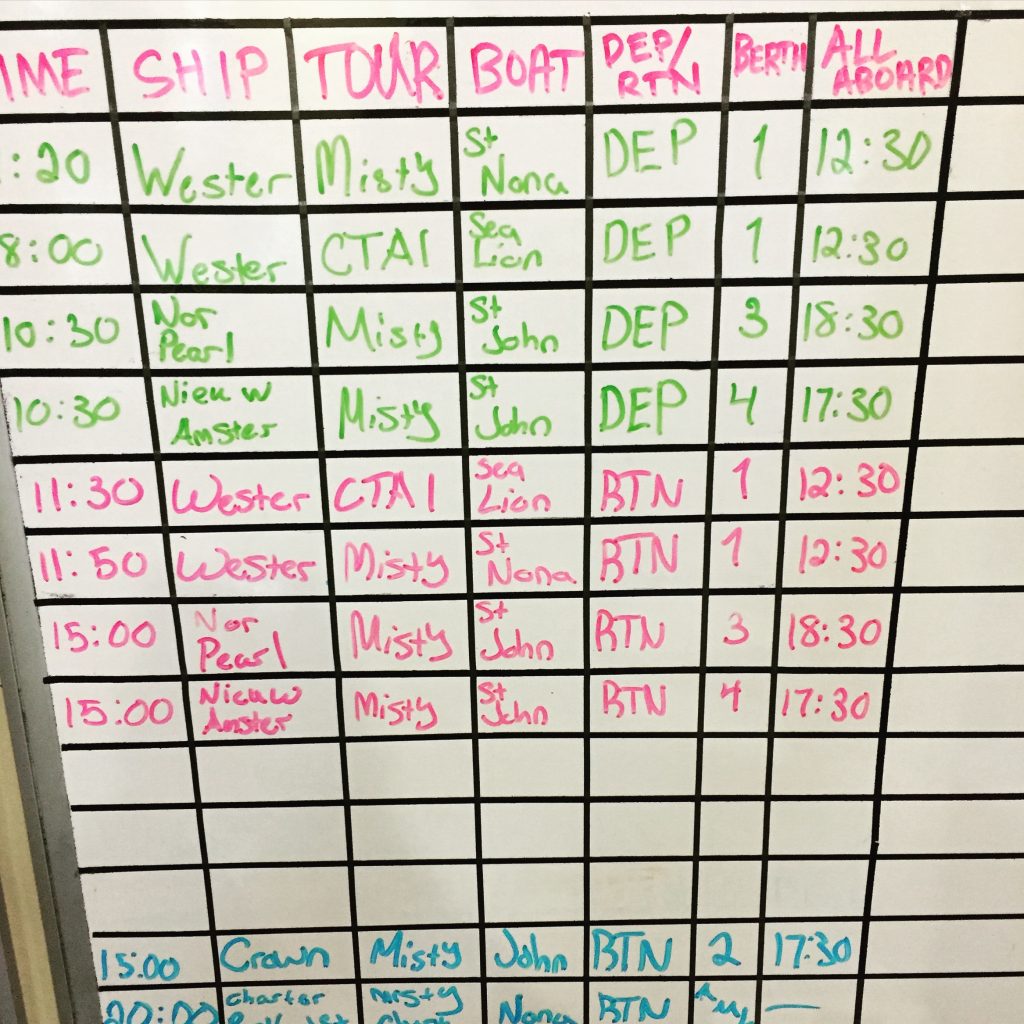 IME SHIP TOUR BOAT DEP/RTN BERTH ALL ABOARD
:20 Wester Misty St Nona DEP 1 12:30
8:00 Wester CTAI Sea Lion DEP 1 12:30
10:30 Nor Pearl Misty St John DEP 3 18:30
10:30 Nieuw Amster Misty St John DEP 4 17:30
11:30 Wester CTAI Sea Lion RTN 1 12:30
11:50 Wester Misty St Nona RTN 1 12:30
15:00 Nor Pearl Misty St John RTN 3 18:30
15:00 Nieuw Amster Misty St John RTN 4 17:30
15:00 Crown Misty John RTN 2 17:30
20:00 Charter Misty Nona RTN —